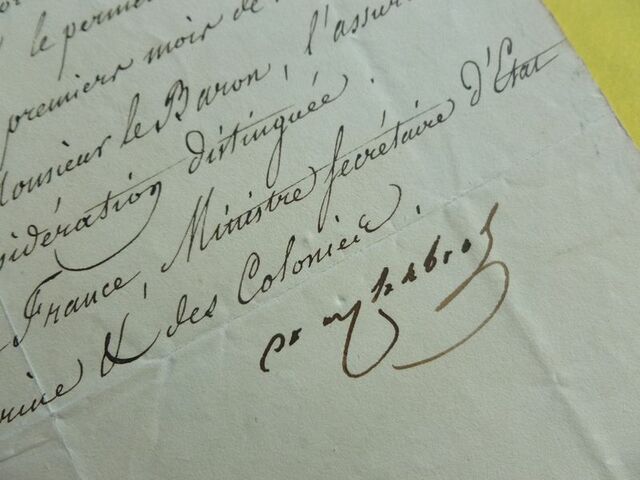 le perme
premiers mois de
Monsieur le Baron, l'assur
sidération distinguée.
France, Ministre secrétaire d'Etat
rine & des Colonies,